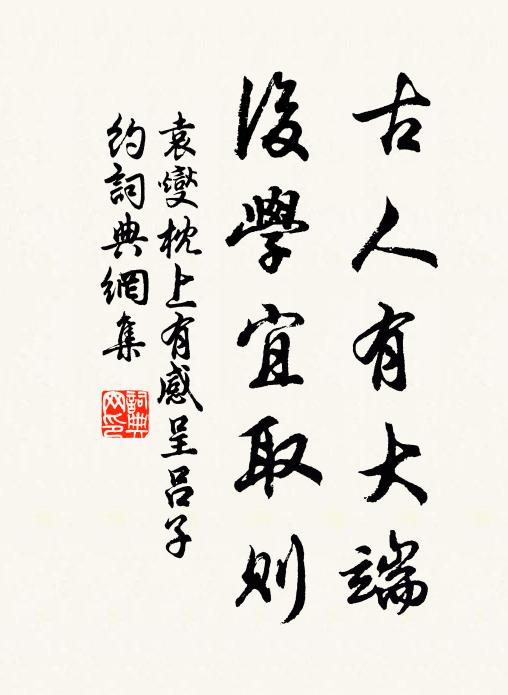 古人有大端
後學宜取則
袁燮枕上有感呈吕子
約詞典網集
詞典
网印